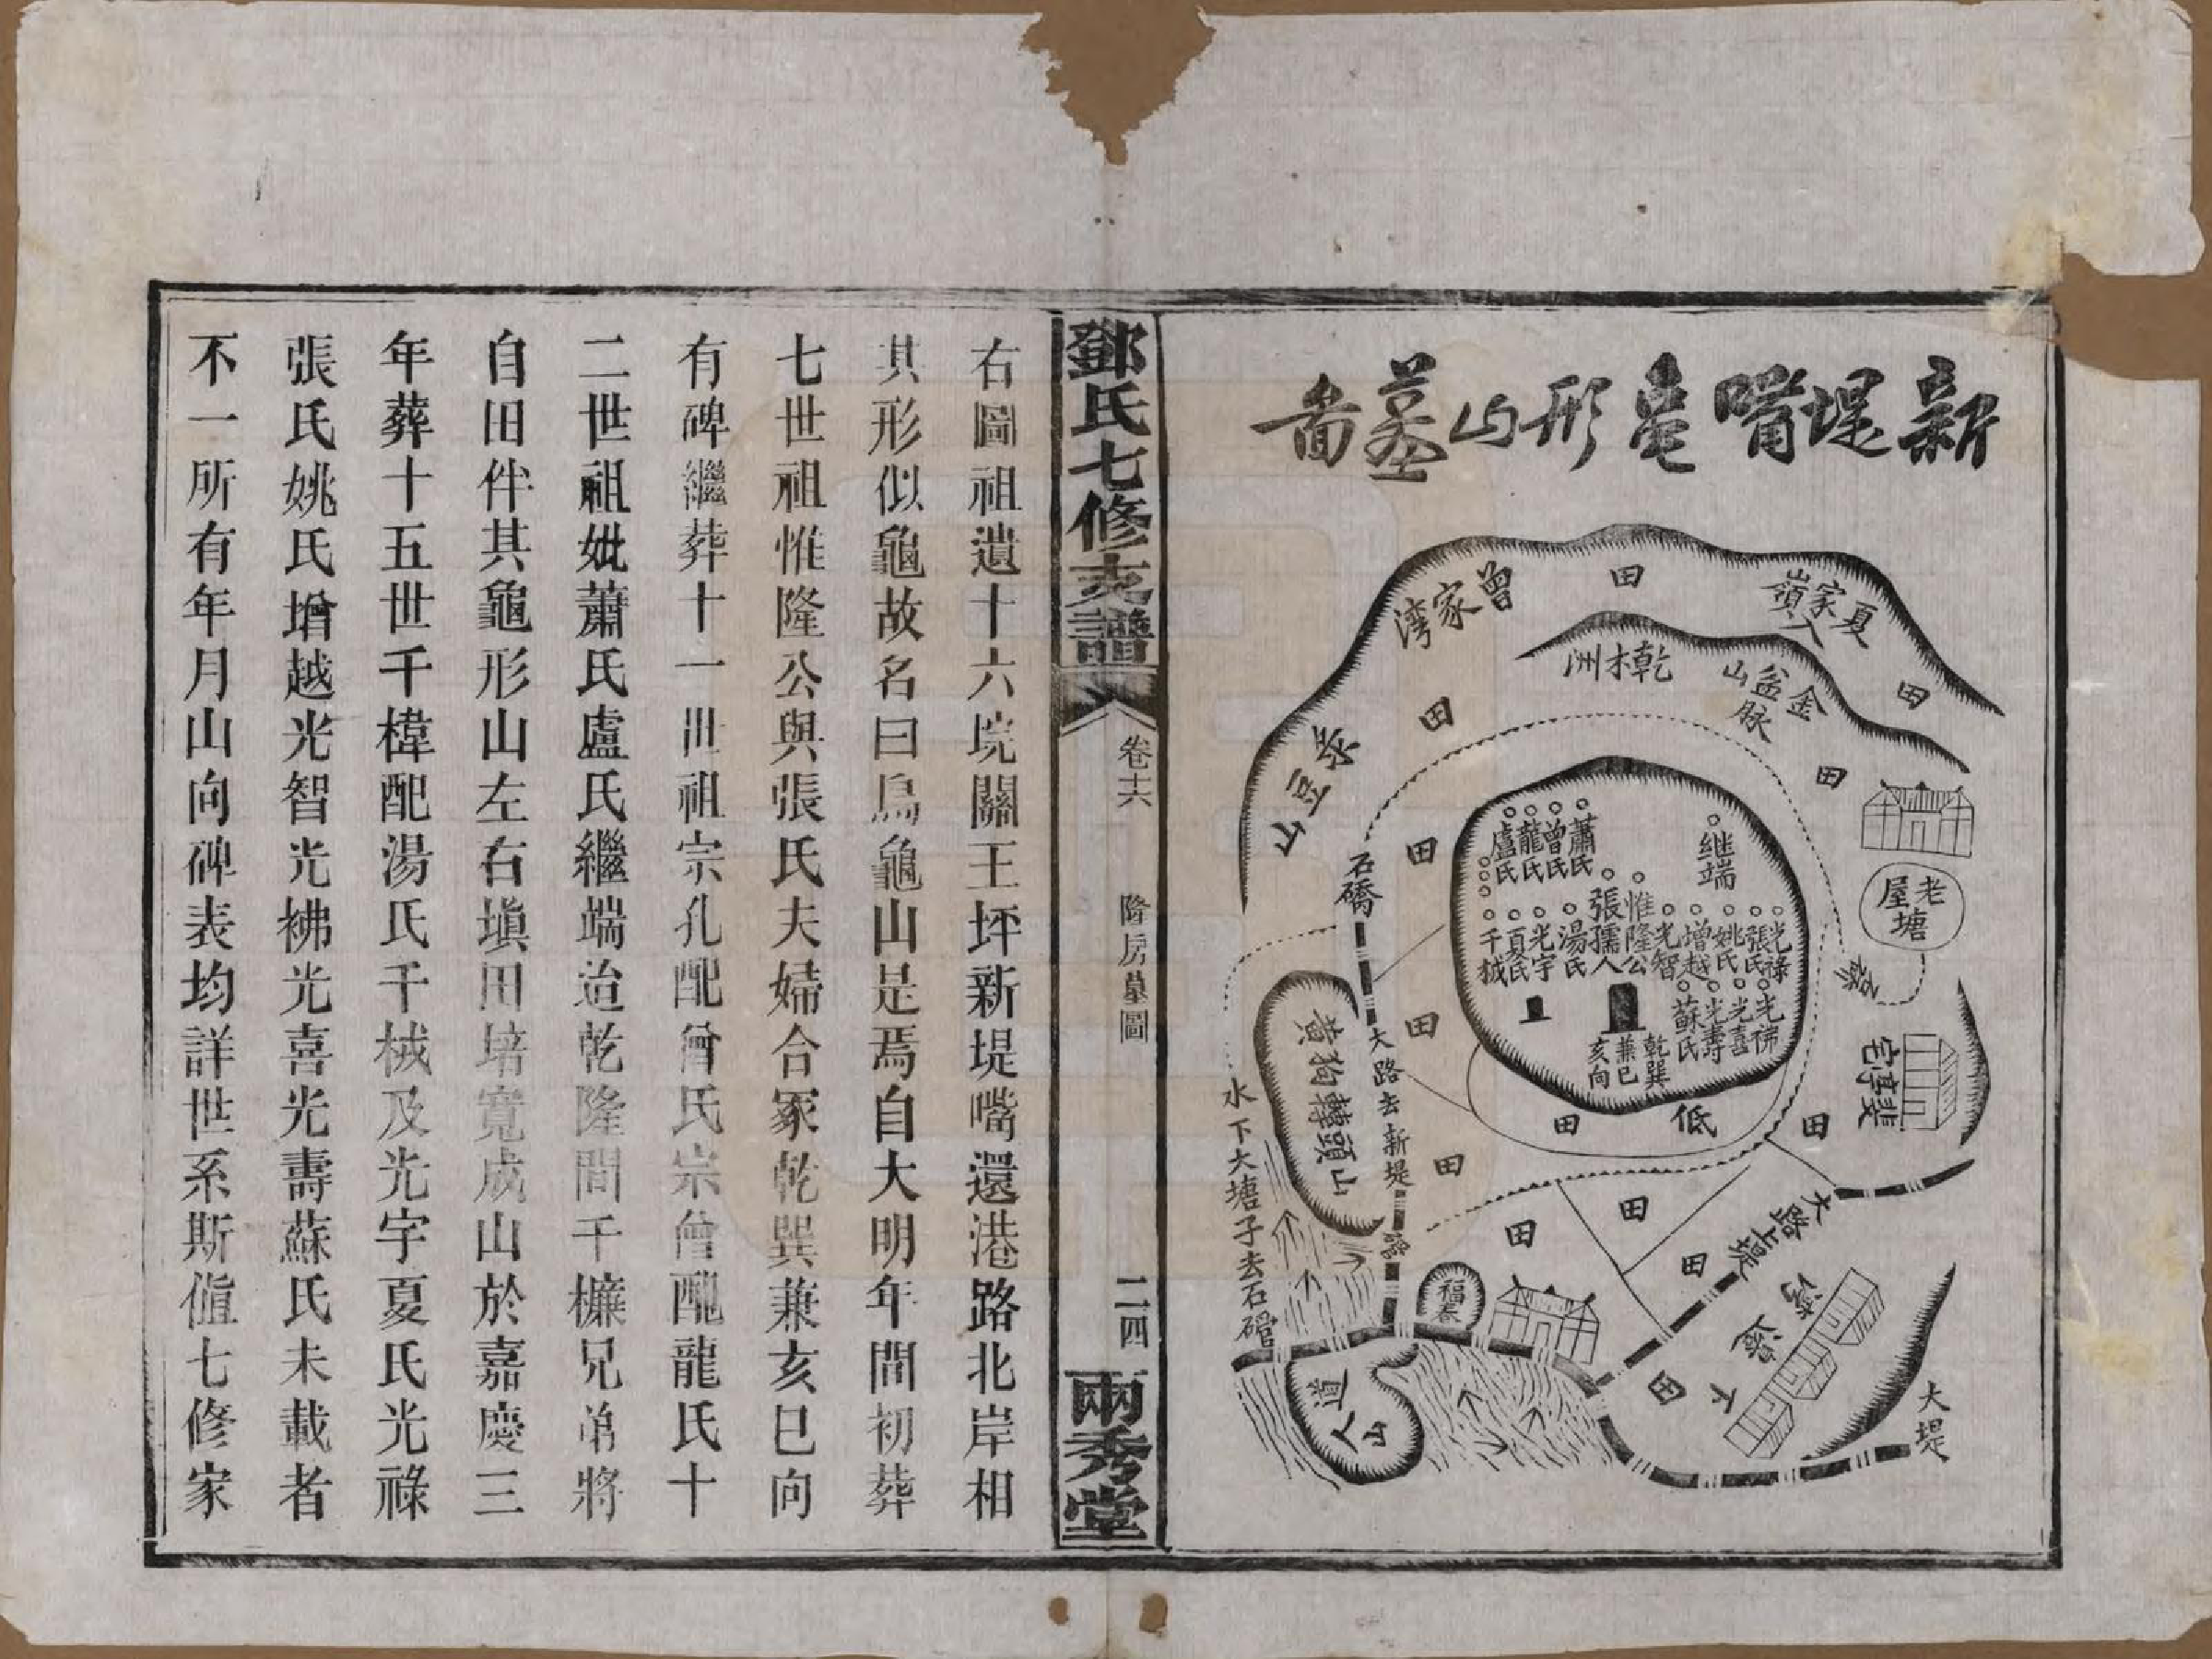 新堤嘴龜形山墓圖
夏家嶺入
田
曾家湾
田
金盆山脉
乾木洲
田
茶豆山
田
老塘屋
石磡
田
蕭氏
曾氏
龍氏
盧氏
继端
惟隆公
張孺人
光禄
張氏
姚氏
增越
光智
湯氏
光宇
夏氏
千棫
光祓
光喜
光壽
蘇氏
乾巽
兼巳
亥向
田
低
田
田
田
大路去新堤
黃狗轉頭山
水下大塘子去石磖
大路上堤
田
田
田
田
福泰
道人山
大堤
鄧氏七修支譜
卷十六
隆房墓圖
二四
兩秀堂
右圖祖遺十六垸關王坪新堤嘴還港路北岸相
其形似龜故名曰烏龜山是焉自大明年間初葬
七世祖惟隆公與張氏夫婦合冢乾巽兼亥巳向
有碑繼葬十一世祖宗孔配曾氏宗僧配龍氏十
二世祖妣蕭氏盧氏繼端迨乾隆間千槺兄弟將
自田伴其龜形山左右塡田培寬成山於嘉慶三
年葬十五世千樟配湯氏千棫及光宇夏氏光祿
張氏姚氏增越光智光祓光喜光壽蘇氏未載者
不一所有年月山向碑表均詳世系斯値七修家